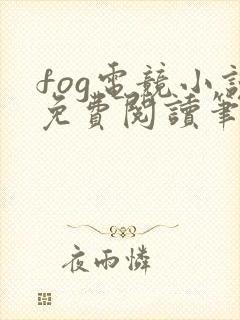 fog電競小說
免費閱讀筆
夜雨憐